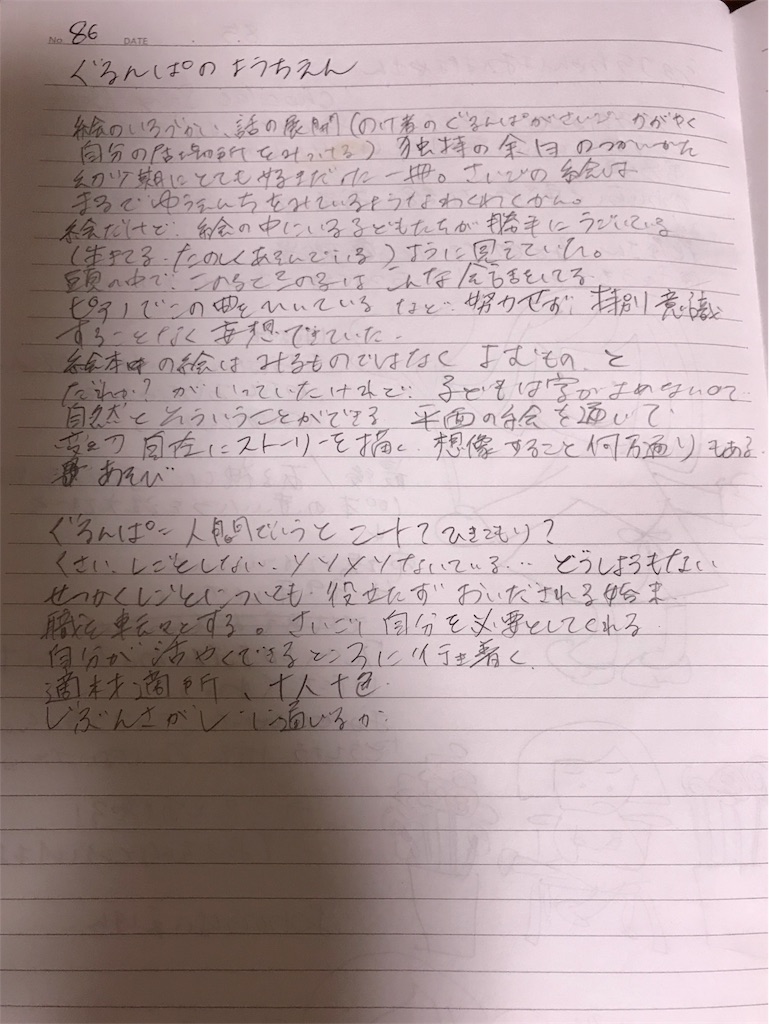 No. 86 DATE
ぐるんぱのようちえん
絵のいろづかい、話の展開(のけ者のぐるんぱがさいごかがやく
自分の居場所をみつける)独特の余白のつかいかた
幼少期にとても好きだった一冊。さいごの絵は
まるでゆうえんちをみているようなわくわくかん。
絵だけど、絵の中にいる子どもたちが勝手にうごいている
(生きてる、たのしくあそんでいる)ように見えていた。
頭の中で、この子とこの子はこんな会話をしてる
ピアノでこの曲をひいているなど、努力せず、特別意識
することなく妄想できていた。
絵本の絵はみるものではなくよむもの、と
だれか?がいっていたけれど、子どもは字がよめないので
自然とそういうことができる 平面の絵を通いて
自在にストーリーを描く、想像すること何万通りもある
あそび
ぐるんぱ=人間でいうとニート?ひきこもり?
くさい、しごとしない、メソメソないている… どうしようもない
せっかくしごとについても役立たずおいだされる始末
職を転々とする。さいごに自分を必要としてくれる
自分が活やくできるところに行き着く
適材適所、十人十色
じぶんさがしに通じるか